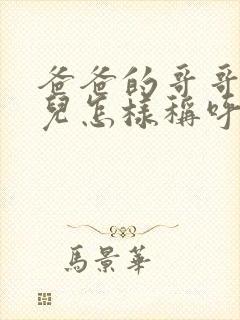 爸爸的哥哥
兒怎樣稱呼
馬景華